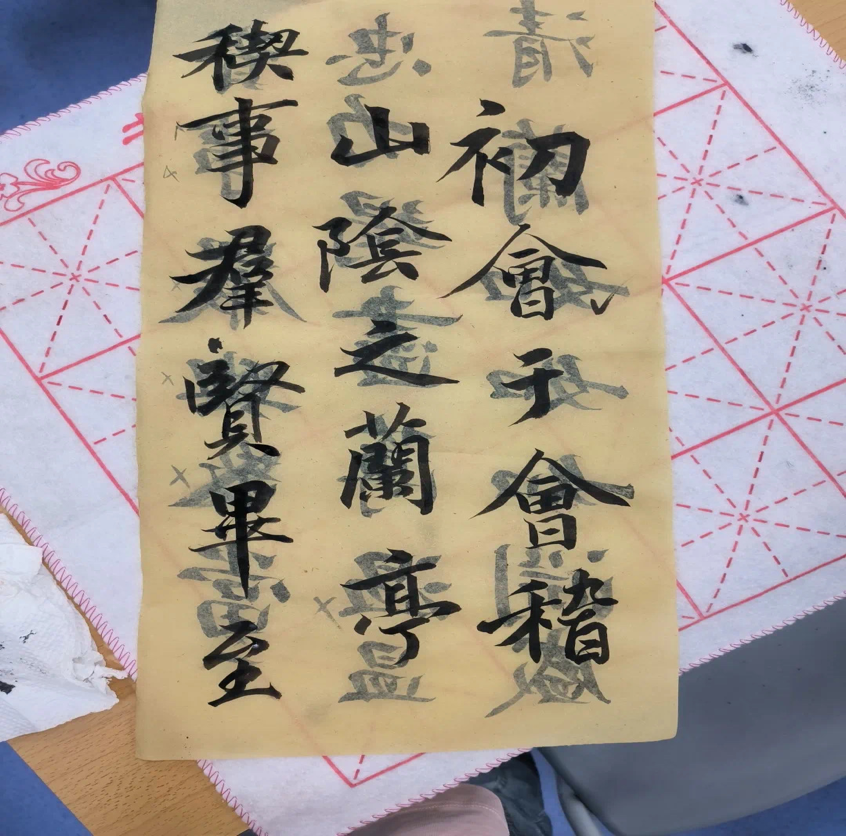 初會于會稽
山陰之蘭亭
稧事羣賢畢至